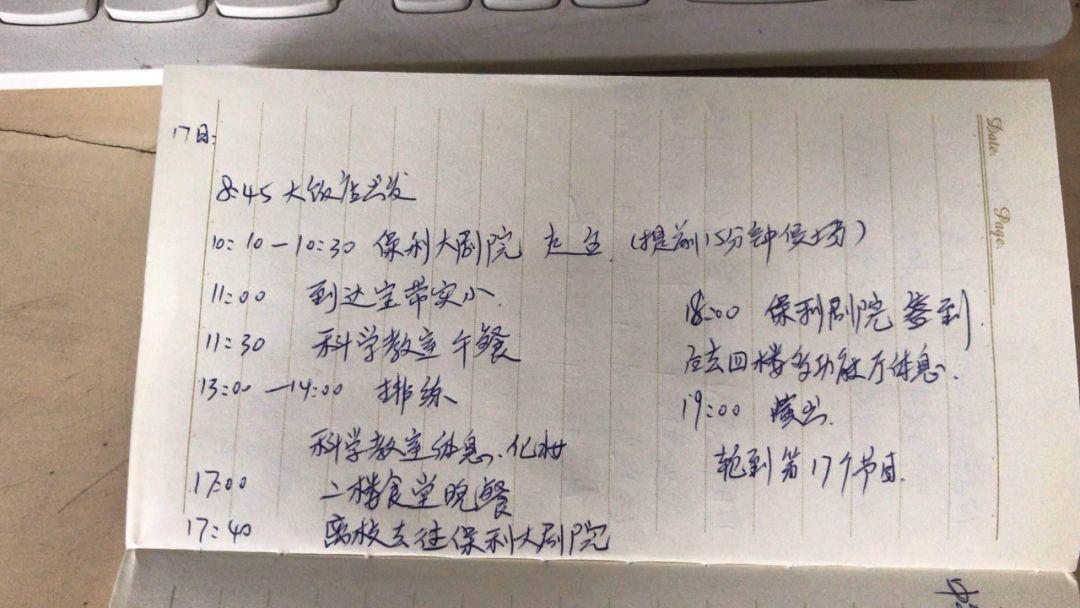 17日:
8:45 大饭店出发
10:10—10:30 保利大剧院 走台 (提前15分钟候场)
11:00 到达宝带实小
11:30 科学教室午餐
13:00—14:00 排练
科学教室休息、化妆
17:00 二楼食堂晚餐
17:40 离校去往保利大剧院
18:00 保利剧院签到
后去四楼多功能厅休息.
19:00 演出.
轮到第17个节目.
Date.
Page.